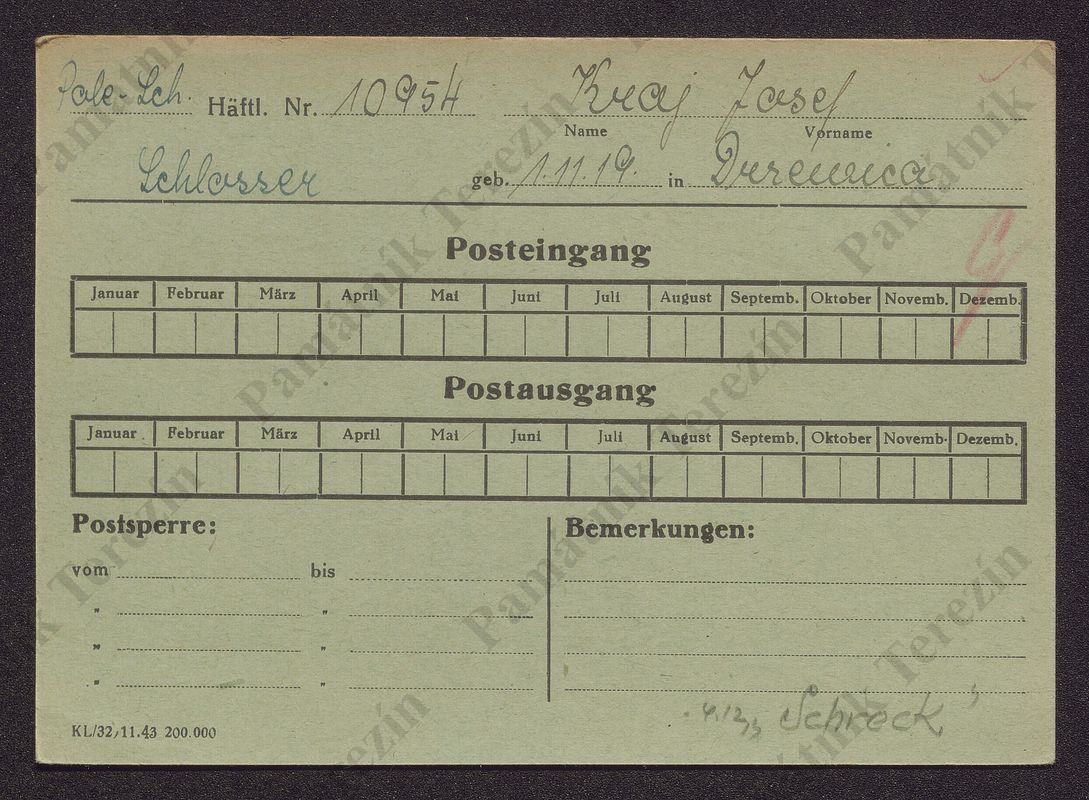 Pole-Sch. Häftl. Nr. 10954 Kraj Josef
Name Vorname
Schlosser geb. 1.11.19. in Drzewica
Posteingang
Januar Februar März April Mai Juni Juli August Septemb. Oktober Novemb. Dezemb.
Postausgang
Januar Februar März April Mai Juni Juli August Septemb. Oktober Novemb. Dezemb.
Postsperre: Bemerkungen:
vom bis
" "
" "
" "
Schrock
KL/32, 11.43 200.000
Památník Terezín